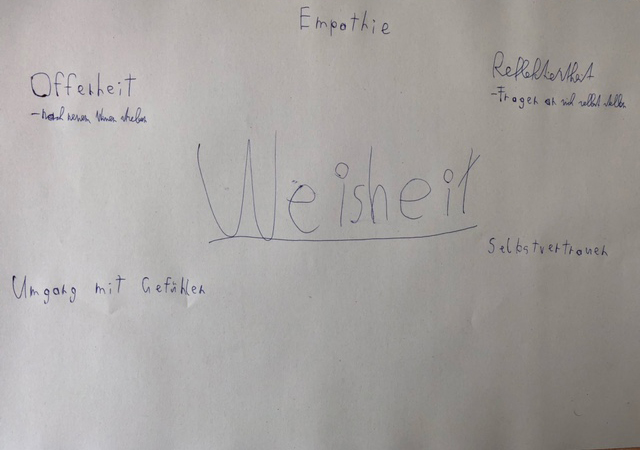 Empathie
Offenheit
- nach neuem Wissen streben
Reflektiertheit
- Fragen an sich selbst stellen
Weisheit
Selbstvertrauen
Umgang mit Gefühlen